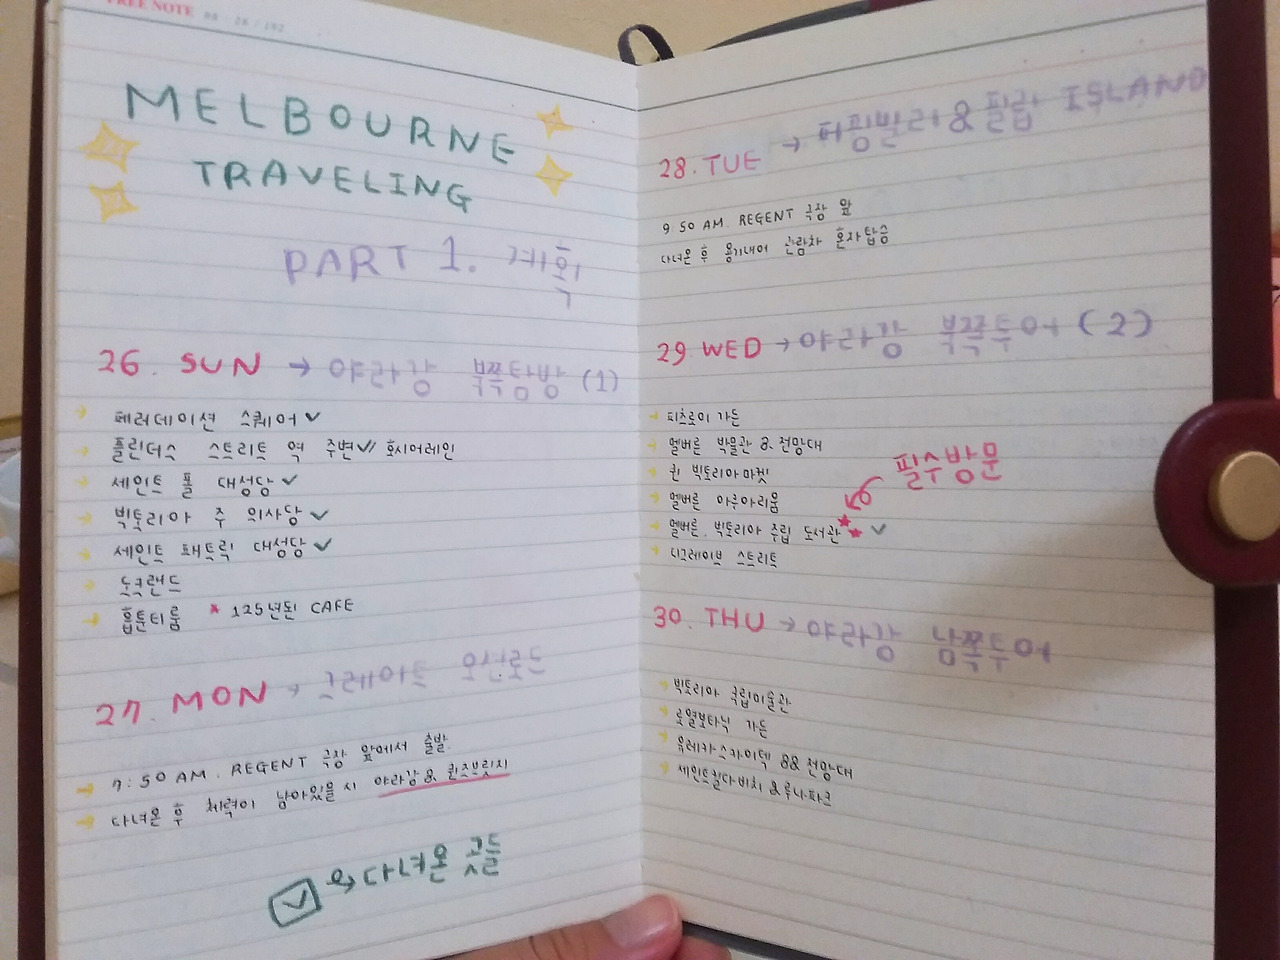 FREE NOTE
MELBOURNE
TRAVELING
PART 1. 계획
26. SUN → 야라강 북쪽탐방 (1)
→ 페러데이션 스퀘어 ✓
→ 플린더스 스트리트 역 주변 ✓// 호시어레인
→ 세인트 폴 대성당 ✓
→ 빅토리아 주 의사당 ✓
→ 세인트 패트릭 대성당 ✓
→ 도크랜드
→ 홉툰티룸 * 125년된 CAFE
27. MON → 그레이트 오션로드
→ 7:50 AM. REGENT 극장 앞에서 출발.
→ 다녀온 후 체력이 남아있을 시 야라강 & 퀸즈브릿지
☑ → 다녀온 곳들
28. TUE → 퍼핑빌리 & 필립 ISLAND
9:50 AM. REGENT 극장 앞
다녀온 후 용기내어 관람차 혼자탑승
29. WED → 야라강 북쪽투어 (2)
→ 피츠로이 가든
→ 멜버른 박물관 & 전망대
→ 퀸 빅토리아마켓
필수방문
→ 멜버른 아쿠아리움
→ 멜버른. 빅토리아 주립 도서관 ★★ ✓
→ 디그레이브 스트리트
30. THU → 야라강 남쪽투어
→ 빅토리아 국립미술관
→ 로열보타닉 가든
→ 유레카 스카이덱 88 전망대
→ 세인트킬다비치 & 루나파크